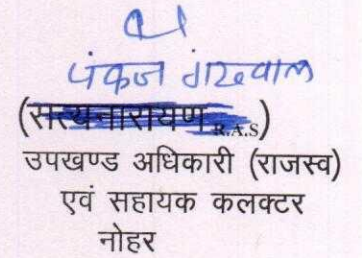 पंकज गढ़वाल
(सत्यनारायण R.A.S)
उपखण्ड अधिकारी (राजस्व)
एवं सहायक कलक्टर
नोहर